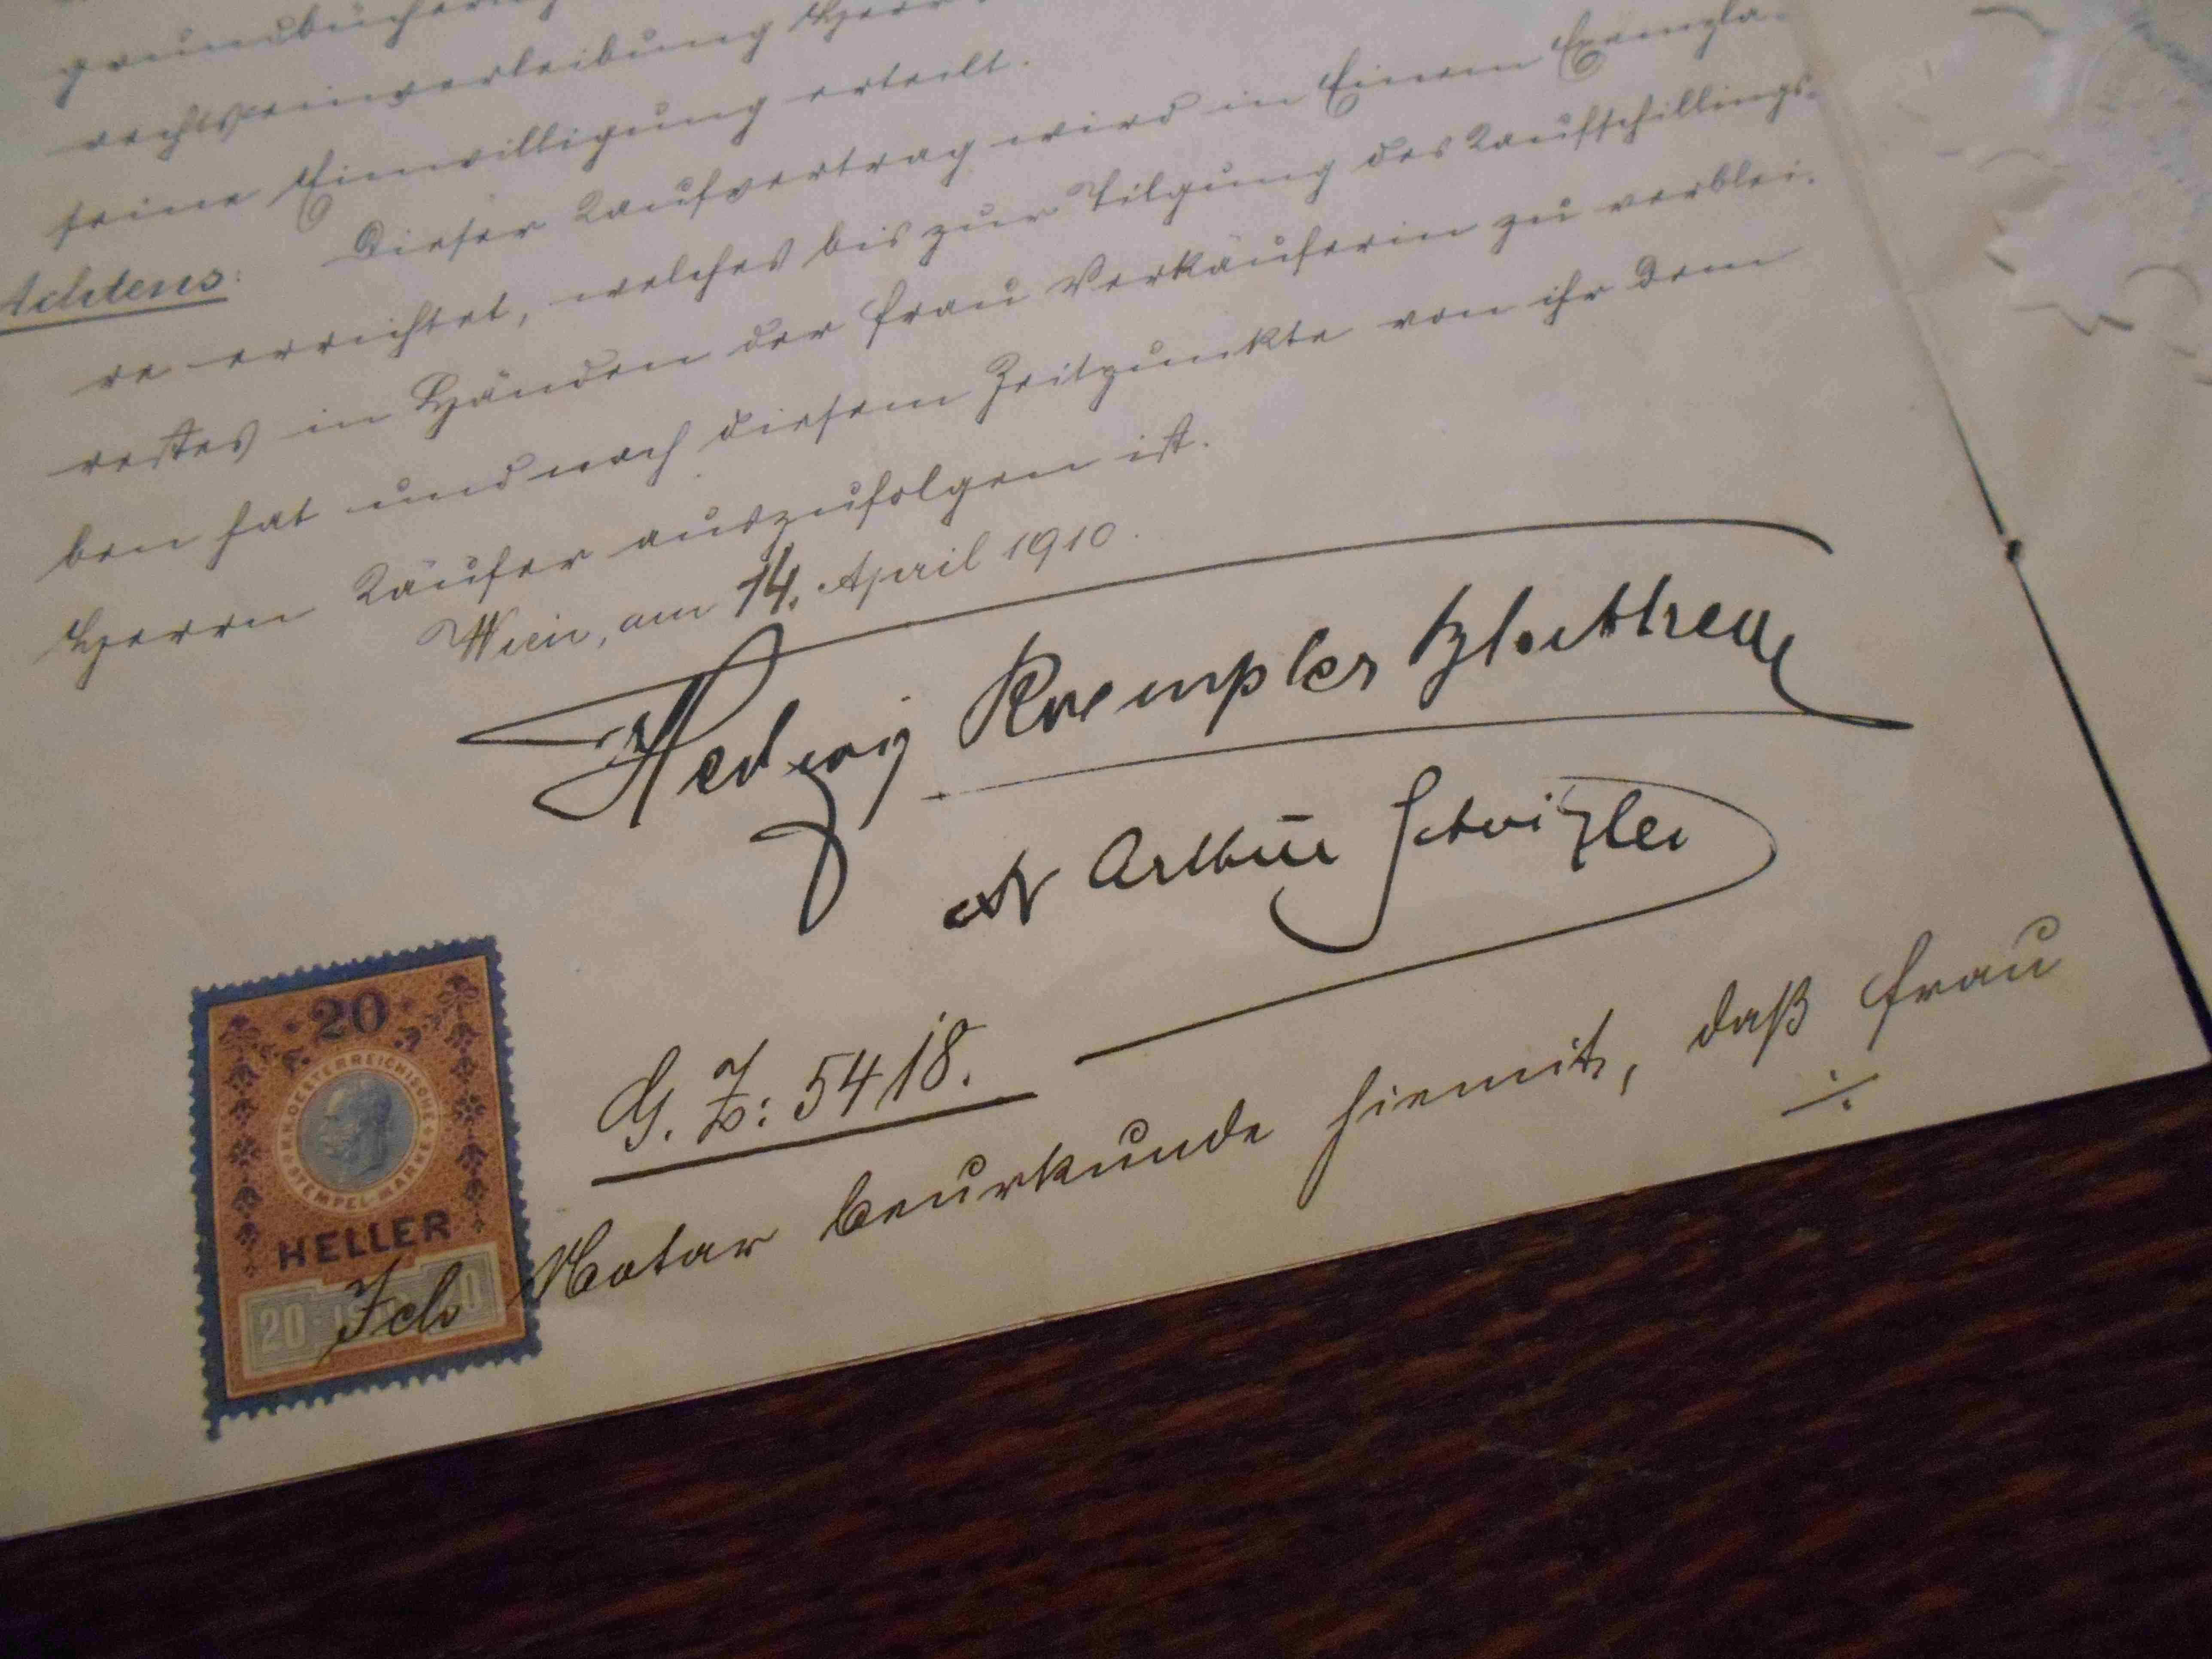 grundbücher
rechtseinverleibung Herr
seine Einwilligung erteilt.
Achtens: Dieser Kaufvertrag wird in Einem Exempla-
re errichtet, welches bis zur Tilgung des Kaufschillings-
restes in Händen der Frau Verkäuferin zu verblei-
ben hat und nach diesem Zeitpunkte von ihr dem
Herrn Käufer auszufolgen ist.
Wien, am 14. April 1910.
Hedwig Roempler Bleibtreu
Dr Arthur Schnitzler
20
K.K. OESTERREICHISCHE STEMPEL-MARKE
HELLER
20
G. Z: 5418.
Ich Notar beurkunde hiemit, daß Frau